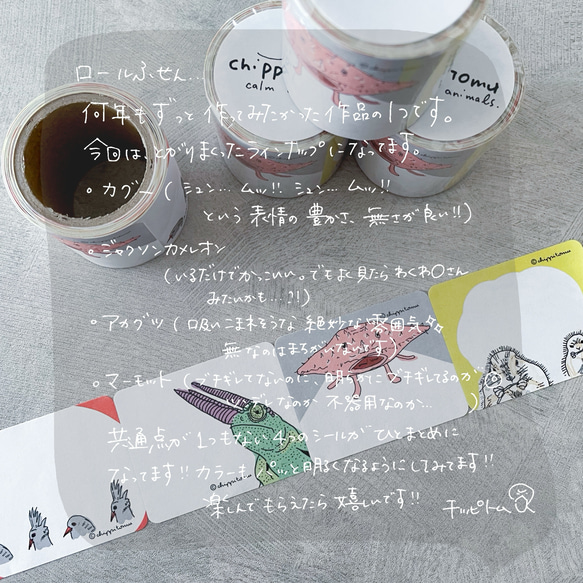 chipp
calm
romu
animals.
ロールふせん...
何年もずっと作ってみたかった作品の1つです。
今回は、とがりまくったラインナップになってます。
○カグー(シュン...ムッ!!シュン...ムッ!!
という表情の豊かさ、無さが良い!!)
○ジャクソンカメレオン
(いるだけでかっこいい。でもよく見たら
みたいかも...?!)
○アカグツ(吸いこまれそうな絶妙な雰囲気
無なのはまちがいないです)
○マーモット(ブチギレてないのに、明らかにブチギレてるのが
ツンデレなのか不器用なのか... )
共通点が1つもない4つのシールがひとまとめに
なってます!!カラーもパッと明るくなるようにしてみてます!!
楽しんでもらえたら嬉しいです!!
チッピトム
©chippitomu
©chippitomu
©chippitomu
©chippitomu